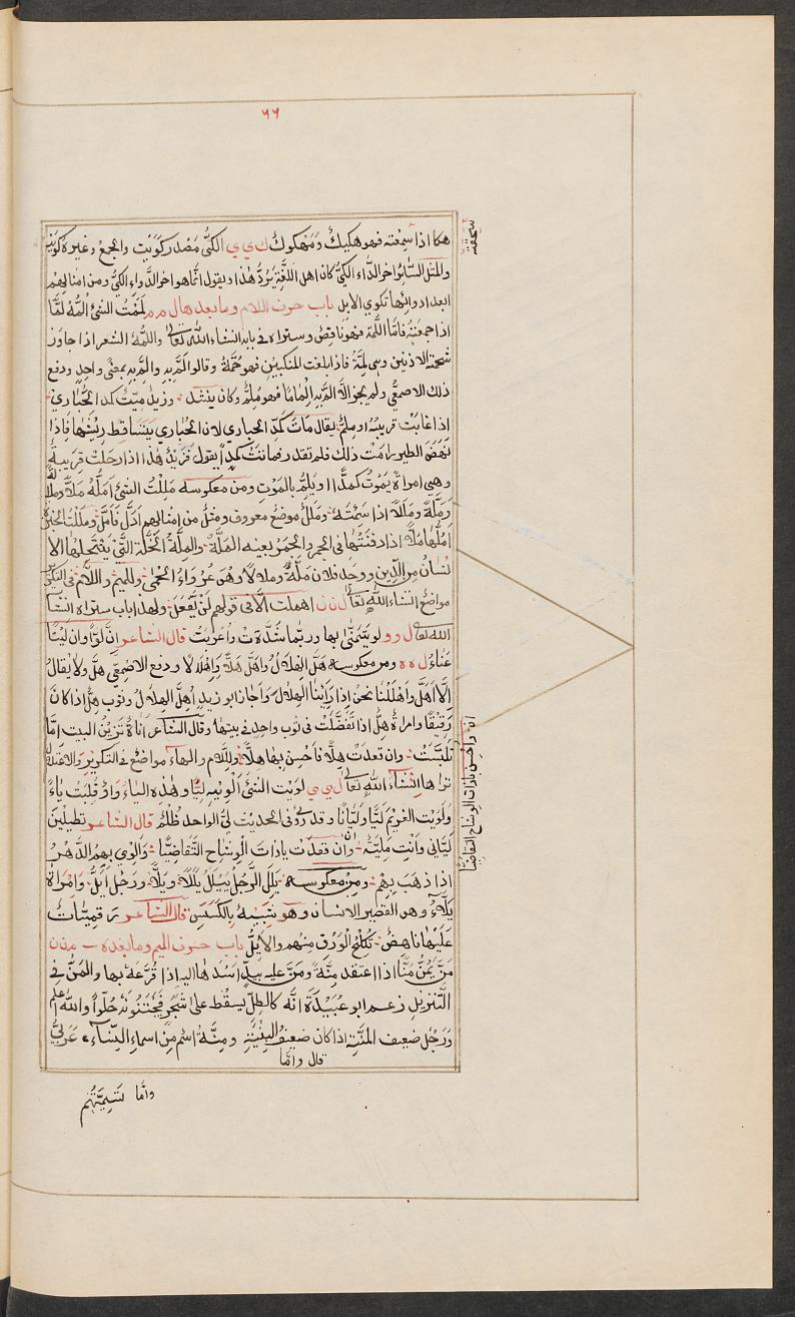 ٦٦
هكا اذا سمعته فهو هكيك ومنهكوك ك ي ي الكيّ مصدر كويت والجمع وغيره كويته
والمثل السّائر اخر الدّاء الكيّ كان اهل اللّغة يردّ هذا ويقول انّما هو اخر الدّواء الكيّ ومن امثالهم
ابعد ادوائها تكوي الابل باب حرف اللام وما بعدها ل م م لممت الشئ المّه لمّا
اذا جمعته فامّا اللّمة فهو ناقص وستراه في بابه انشاء الله تعالى واللمّة الشعر اذا جاوز
شحمة الاذنين وهي لمّة فاذا بلغت المنكبين فهو جُمّة وقالوا لمّ به والمّ به بمعنى واحد ودفع
ذلك الاصمعيّ ولم يجز الّا المّ به الماما فهو ملمّ وكان ينشد وزيد ميّت كمد الحبارى
اذا غابت قريبة او ملمّ يقال مات كمد الحبارى لان الحبارى يتساقط ريشها فاذا
نهض الطير رامت ذلك فلم تقدر فماتت كمدا يقول فزيد هذا اذا رحلت قريبة
وهي امراة يموت كمدا او يلمّ بالموت ومن معكوسه مللت الشئ املّه مللا وملالة
وملّة وملالا اذا سئمته وملل موضع معروف ومثل من امثالهم ادلّ فاملّ ومللت الخبزة
املّها ملّا اذا دفنتها في الجمر والجمر بعينه الملّة والملّة النحلة التّي ينتحلها الا
نسان من الدّين ووجد فلان ملّة وملالا وهي عرواء الحمّى وللميم واللّام في التكرير
مواضع انشاء الله تعالى ل ن ن اهملت الّا في قولهم لن يفعل ولهذا باب ستراه انشا
الله تعالى ل و و لو يتمنّى بها وربّما شدّدت واعربت قال الشاعر انّ لوّا وانّ ليتا
عناء ل ه ه ومن معكوسه هلّ الهلال واهلّ هلّا واهلالا ودفع الاصمعي هلّ ولا يقال
الّا اهلّ واهللنا نحن اذا راينا الهلال واجاز ابو زيد اهلّ الهلال وثوب هلّ اذا كان
رقيقا وامراة هلّ اذا تفضّلت في ثوب واحد في بيتها وقال الشاعر اناة تزين البيت امّا
تلبّبت وان قعدت هلّا فاحسن بها هلّا وللّام والهاء مواضع في التكرير والاعتلال
تراها انشاء الله تعالى ل ي ي لويت الشئ الويه ليّا وهذه الياء واو قلبت ياء
ولويت الغريم ليّا وليّانا وقد روي في الحديث ليّ الواجد ظلم قال الشاعر تطيلين
ليّاني وانت مليّة وان قعدت يا ذات الوشاح التّقاضيا والوي بهم الدّهر
اذا ذهب بهم ومن معكوسه يلل الرّجل ييلل يللا ويلّا ورجل ايلّ وامراة
يلّاء وهو القصير الاسنان وهو شبيه بالكسس قال الشاعر رقميات
عليها ناهض تكلح الاورق منهم والايلّ باب حرف الميم وما بعده م ن ن
منّ يمنّ منّا اذا اعتقد منّة ومنّ عليه بيد اسداها اليه اذا قرّعه بها والمنّ في
التّنزيل زعم ابو عبيدة انّه كالطلّ يسقط على شجر فيجتنونه حلوا والله اعلم
ورجل ضعيف المنّة اذا كان ضعيف البنية ومنّة اسم من اسماء النّساء عربيّ
قال وامّا
وامّا تسميتهم